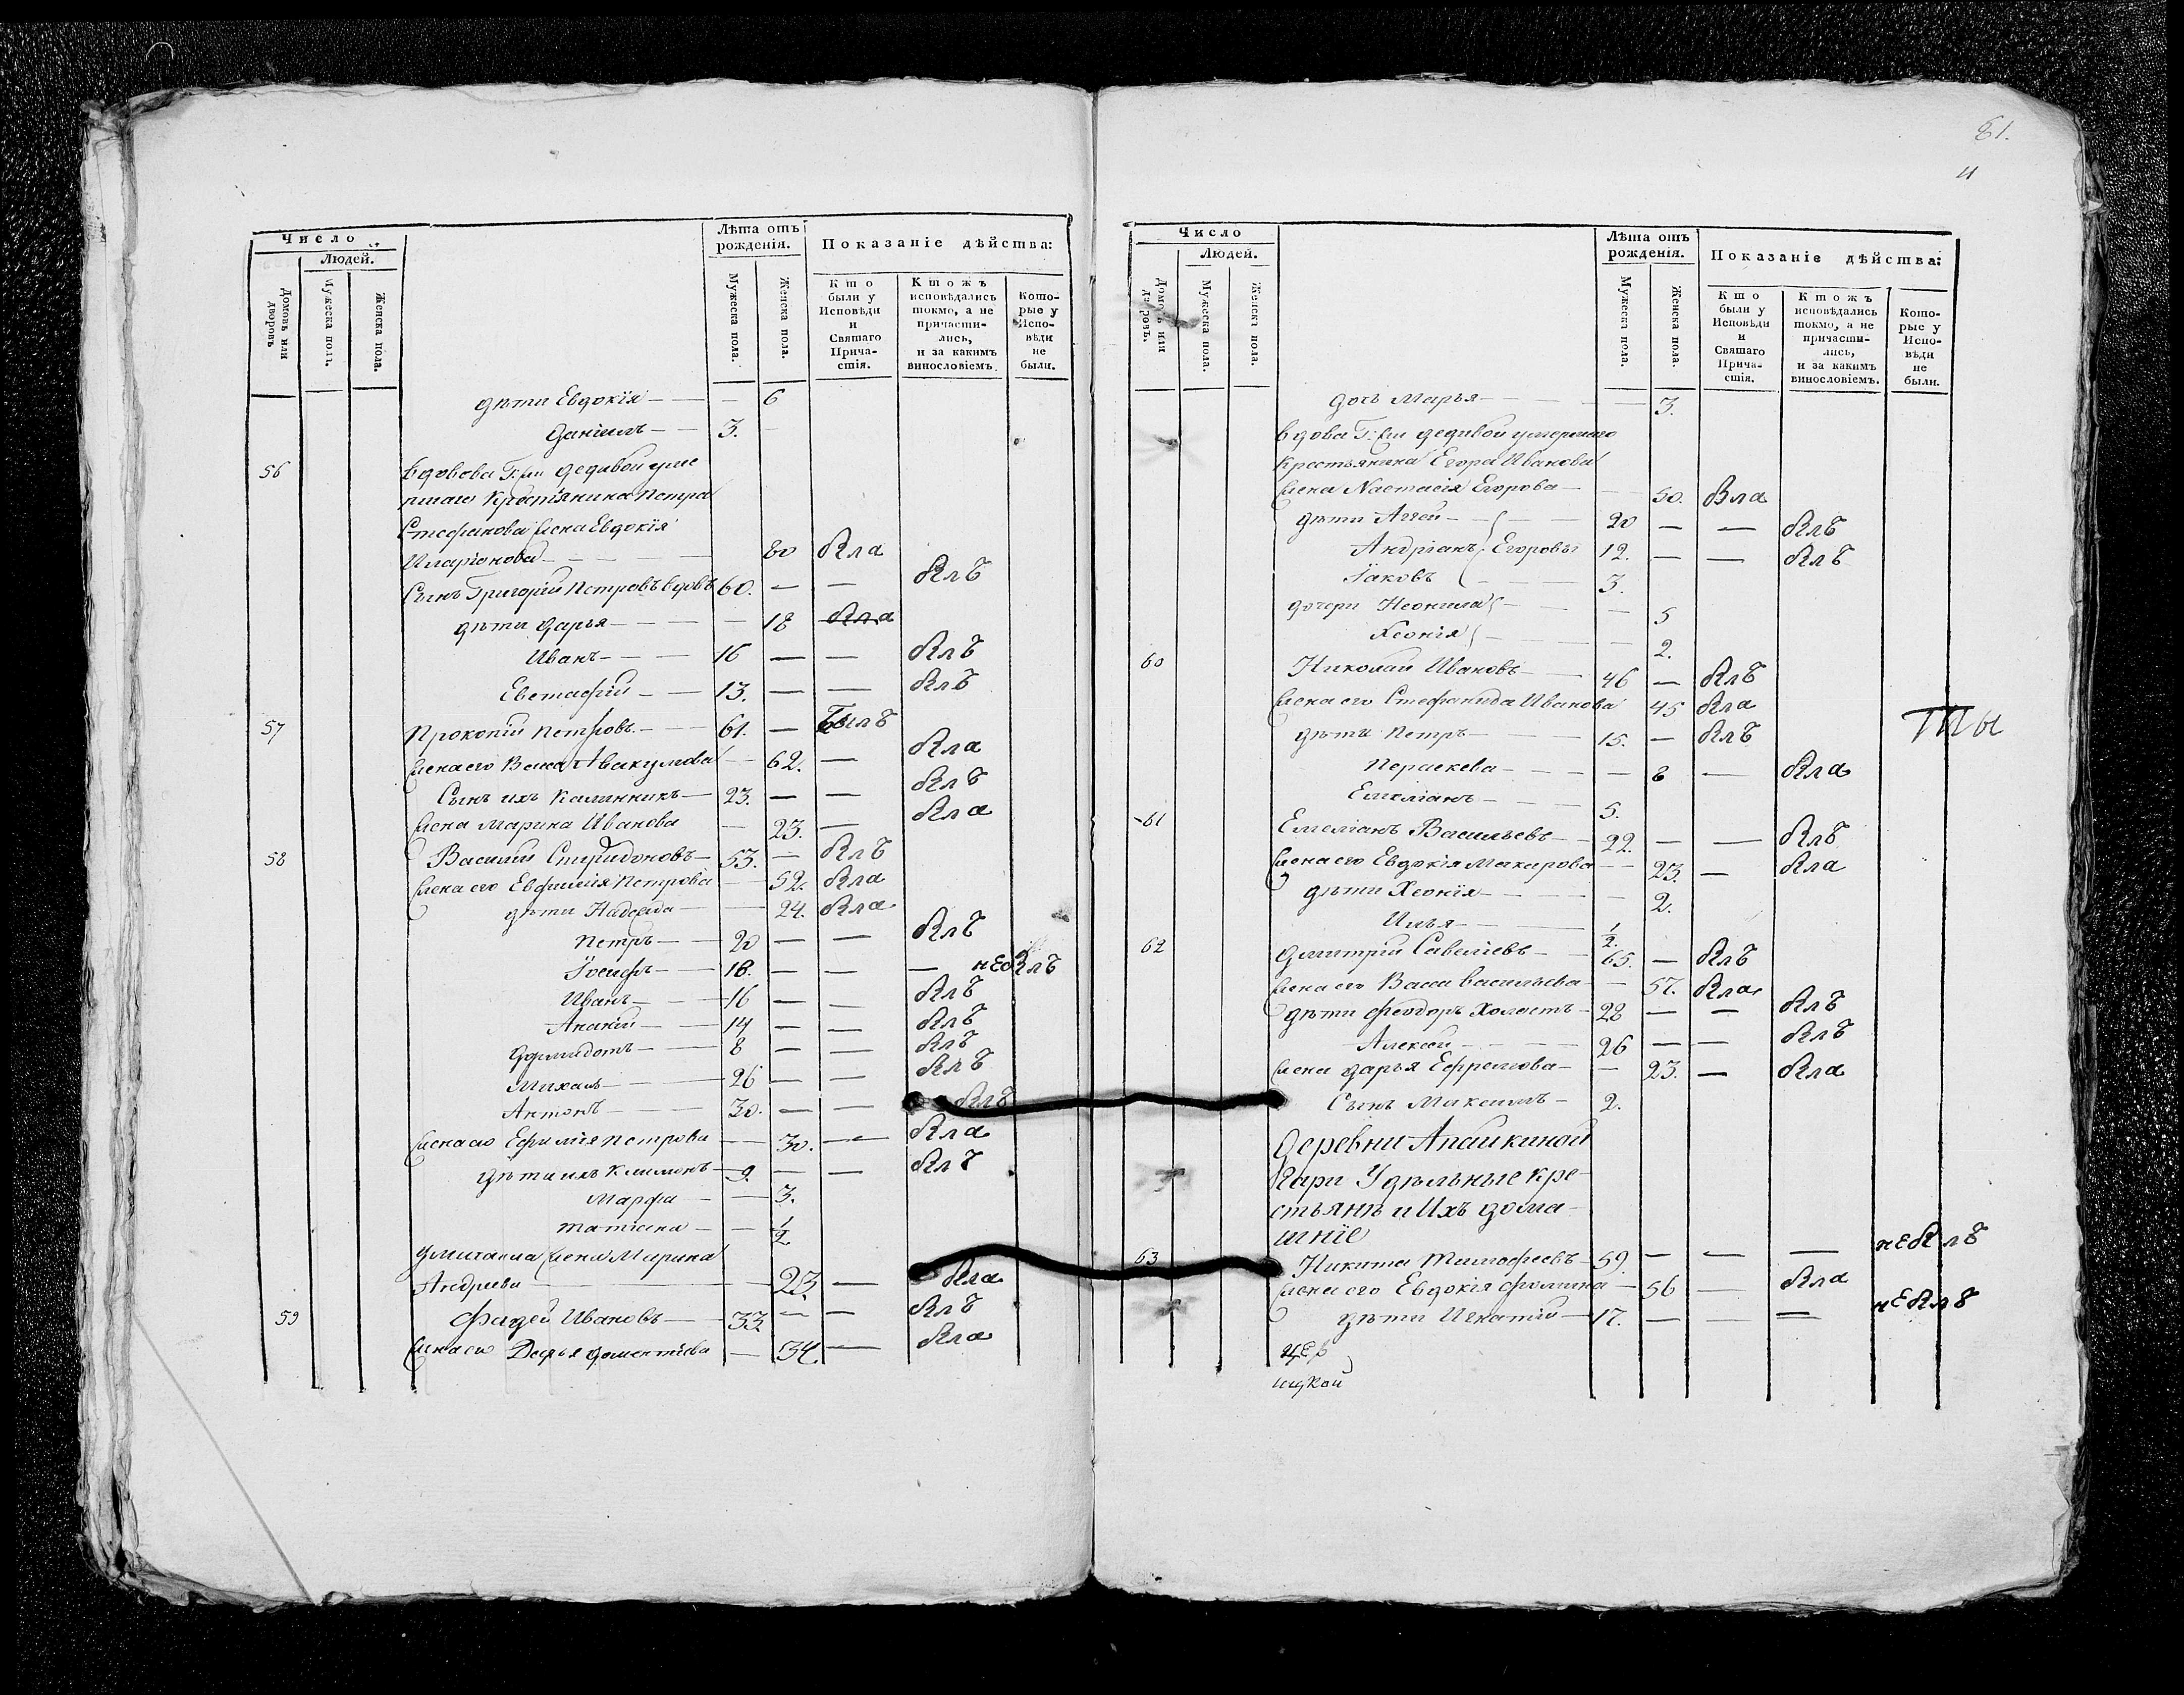 81.
Число
Людей.
Домовъ или дворовъ
Мужеска пола.
Женска пола.
Лѣта отъ рожденія.
Мужеска пола.
Женска пола.
Показаніе дѣйства:
Кто были у Исповѣди и Святаго Прича-стія.
Ктожъ исповѣдались токмо, а не причасти-лись, и за какимъ винословіемъ.
Кото-рые у Испо-вѣди не были.
дѣти Евдокія — — 6
Даніилъ — 3.
56 вдовова Г: дедивой уме
ршаго Крестіянина Петра
Стефанова жена Евдокія
Иларіонова — 80 была
Сынъ Григорій Петровъ вдовъ 60. — — былъ
дѣти Дарья — — 18 была
Иванъ — 16 — — былъ
Евстафій — 13. — — былъ
57 Прокопій Петровъ — 61. — былъ
жена его Васса Авакумова — 62. — была
Сынъ ихъ Калинникъ — 23. — — былъ
жена Марина Иванова — 23. — была
58 Василій Спиридоновъ — 53. — былъ
жена его Евфимія Петрова — 52. была
дѣти Надежда — — 24. была
Петръ — 20 — — былъ
Іосифъ — 18. — — — не былъ
Иванъ — 16 — — былъ
Ананій — 14 — — былъ
Діомидотъ — 8 — — былъ
Михаилъ — 26 — — былъ
Антонъ — 30. — — былъ
жена его Ефимія Петрова — 30. — была
дѣти ихъ Климонъ — 9. — — былъ
Марфа — — 3.
Татіана — — 1/2
Михаила жена Марина
Андреева — 23. — была
59 Фадей Иванов — 33. — — былъ
жена его Дарья Дементіева — 34 — была
Число
Людей.
Домовъ или дворовъ.
Мужеска пола.
Женска пола.
Лѣта отъ рожденія.
Мужеска пола.
Женска пола.
Показаніе дѣйства:
Кто были у Исповѣди и Святаго Прича-стія.
Ктожъ исповѣдались токмо, а не причасти-лись, и за какимъ винословіемъ.
Кото-рые у Испо-вѣди не были.
дочь Марья — — 3.
вдова Г: дедивой умершаго
крестьянина Егора Иванова
жена Настасія Егорова — 50. была
дѣти Аггей — 20 — — былъ
Андріанъ Егоровы 12. — — былъ
Іаковъ — 3.
дочери Неонила — — 5
Хеонія — — 2.
60 Николай Ивановъ — 46 — былъ
жена его Стефанида Иванова 45 была
дѣти Петръ — 15. — былъ
Параскева — — 8 — была
Емеліанъ — 5.
61 Емеліанъ Васильевъ — 22. — — былъ
жена его Евдокія Макарова — 23. — была
дѣти Хеонія — — 2.
Илья — 1/2.
62 Дмитрій Савеліевъ — 65. — былъ
жена его Васса Васильева — 57. была
дѣти Феодоръ Холостъ — 28 — — былъ
Алексѣй — 26 — — былъ
жена Дарья Ефремова — — 23. — была
Сынъ Максимъ — 2.
деревни Апайкиной
Гари Удѣльные кре
стьянѣ и Ихъ дома
шніе
63 Никита Тимофеевъ — 59. — — — не былъ
жена его Евдокія Фомина — 56 — была
дѣти Игнатій — 17. — — = не былъ
цер